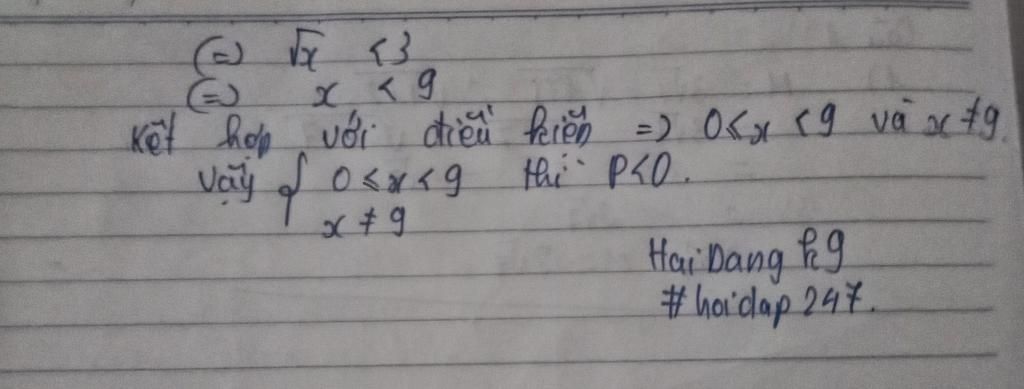 (=) √x < 3
(=) x < 9
Kết hợp với điều kiện => 0 ≤ x < 9 và x ≠ 9.
Vậy { 0 ≤ x < 9 thì P < 0.
x ≠ 9
HaiDang k9
#hoidap247.